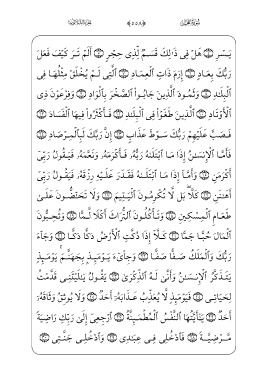 يَسْرِ ۝٤ هَلْ فِي ذَٰلِكَ قَسَمٌ لِّذِي حِجْرٍ ۝٥ أَلَمْ تَرَ كَيْفَ فَعَلَ
رَبُّكَ بِعَادٍ ۝٦ إِرَمَ ذَاتِ الْعِمَادِ ۝٧ الَّتِي لَمْ يُخْلَقْ مِثْلُهَا فِي
الْبِلَادِ ۝٨ وَثَمُودَ الَّذِينَ جَابُوا الصَّخْرَ بِالْوَادِ ۝٩ وَفِرْعَوْنَ ذِي
الْأَوْتَادِ ۝١٠ الَّذِينَ طَغَوْا فِي الْبِلَادِ ۝١١ فَأَكْثَرُوا فِيهَا الْفَسَادَ ۝١٢
فَصَبَّ عَلَيْهِمْ رَبُّكَ سَوْطَ عَذَابٍ ۝١٣ إِنَّ رَبَّكَ لَبِالْمِرْصَادِ ۝١٤
فَأَمَّا الْإِنسَانُ إِذَا مَا ابْتَلَاهُ رَبُّهُ فَأَكْرَمَهُ وَنَعَّمَهُ فَيَقُولُ رَبِّي
أَكْرَمَنِ ۝١٥ وَأَمَّا إِذَا مَا ابْتَلَاهُ فَقَدَرَ عَلَيْهِ رِزْقَهُ فَيَقُولُ رَبِّي
أَهَانَنِ ۝١٦ كَلَّا ۖ بَل لَّا تُكْرِمُونَ الْيَتِيمَ ۝١٧ وَلَا تَحَاضُّونَ عَلَىٰ
طَعَامِ الْمِسْكِينِ ۝١٨ وَتَأْكُلُونَ التُّرَاثَ أَكْلًا لَّمًّا ۝١٩ وَتُحِبُّونَ
الْمَالَ حُبًّا جَمًّا ۝٢٠ كَلَّا إِذَا دُكَّتِ الْأَرْضُ دَكًّا دَكًّا ۝٢١ وَجَاءَ
رَبُّكَ وَالْمَلَكُ صَفًّا صَفًّا ۝٢٢ وَجِايءَ يَوْمَئِذٍ بِجَهَنَّمَ ۚ يَوْمَئِذٍ
يَتَذَكَّرُ الْإِنسَانُ وَأَنَّىٰ لَهُ الذِّكْرَىٰ ۝٢٣ يَقُولُ يَا لَيْتَنِي قَدَّمْتُ
لِحَيَاتِي ۝٢٤ فَيَوْمَئِذٍ لَّا يُعَذِّبُ عَذَابَهُ أَحَدٌ ۝٢٥ وَلَا يُوثِقُ وَثَاقَهُ
أَحَدٌ ۝٢٦ يَا أَيَّتُهَا النَّفْسُ الْمُطْمَئِنَّةُ ۝٢٧ ارْجِعِي إِلَىٰ رَبِّكِ رَاضِيَةً
مَّرْضِيَّةً ۝٢٨ فَادْخُلِي فِي عِبَادِي ۝٢٩ وَادْخُلِي جَنَّتِي ۝٣٠